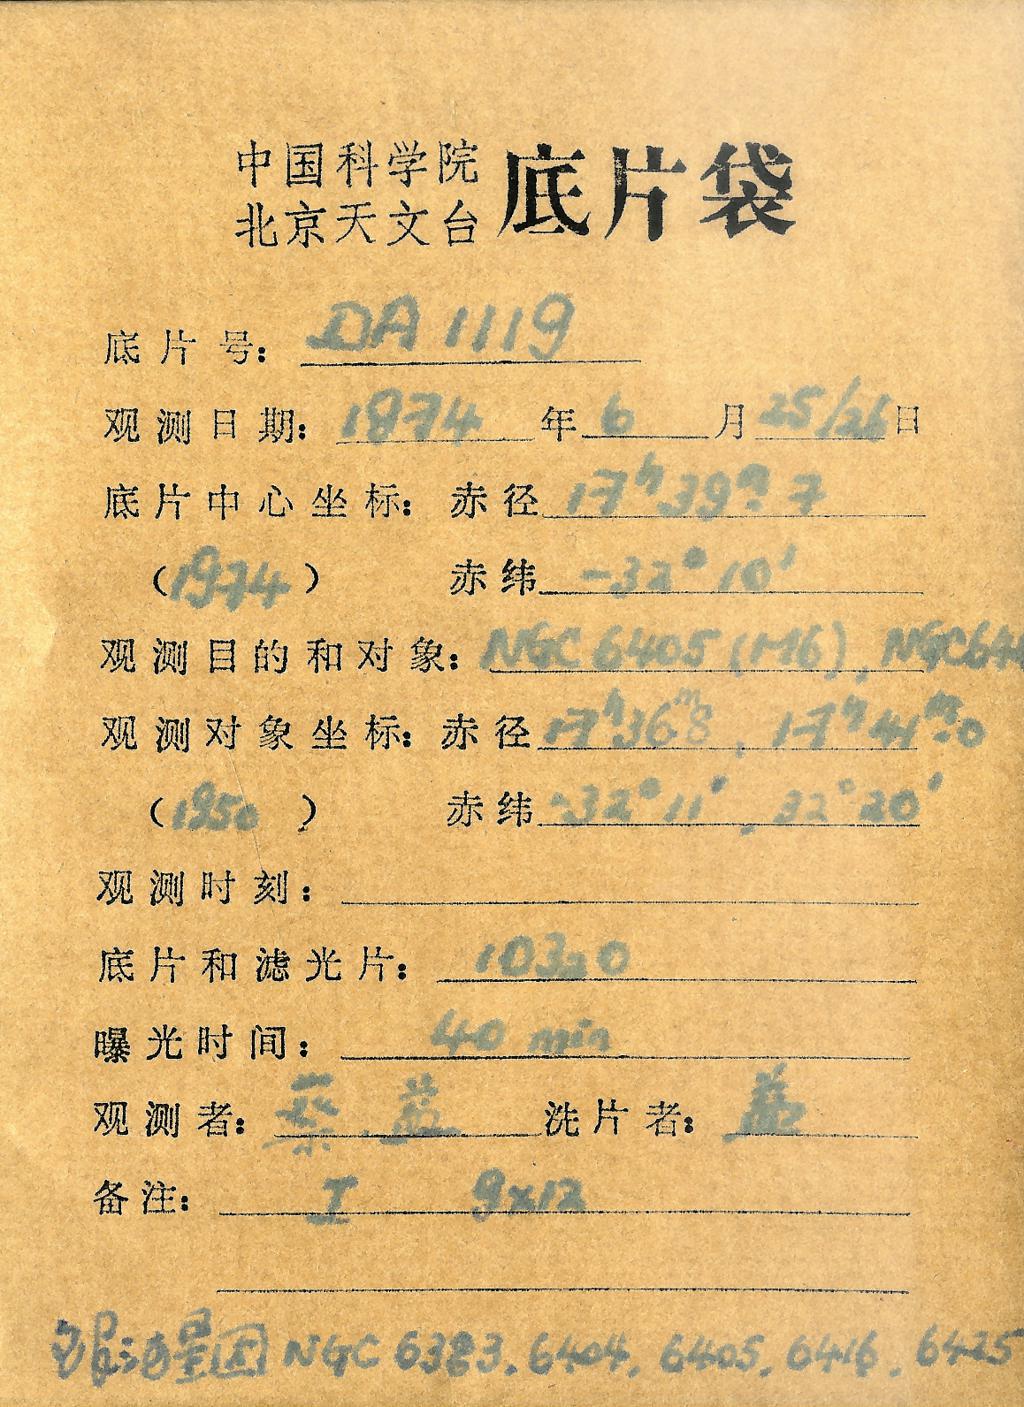 中国科学院
北京天文台 底片袋
底片号: DA 1119
观测日期: 1974 年 6 月 25/26 日
底片中心坐标: 赤径 17h39m.7
(1974) 赤纬 -32°10'
观测目的和对象: NGC 6405 (M6), NGC64
观测对象坐标: 赤径 17h36m8, 17h41m.0
(1950) 赤纬 -32°11', 32°20'
观测时刻:
底片和滤光片: 103aO
曝光时间: 40 min
观测者: 蔡 益 洗片者: 益
备注: I 9x12
银河星团 NGC 6383. 6404. 6405. 6416. 6425